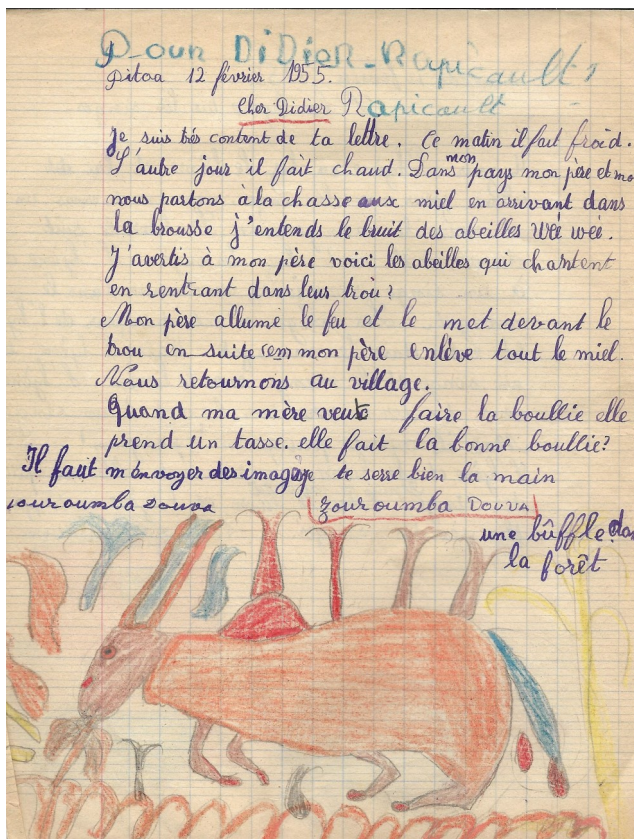 Pour DiDieR-Rapicault
pitoa 12 février 1955.
Cher Didier Rapicault
Je suis très content de ta lettre. Ce matin il fait froid.
L'autre jour il fait chaud. Dans mon pays mon père et mo
nous partons à la chasse aux miel en arrivant dans
la brousse j'entends le bruit des abeilles wéé wéé.
J'avertis à mon père voici les abeilles qui chantent
en rentrant dans leurs trou?
Mon père allume le feu et le met devant le
trou en suite mon père enlève tout le miel.
Nous retournons au village.
Quand ma mère veut faire la boullie elle
prend un tasse. elle fait la bonne boullie?
Il faut m'envoyer des image je te serre bien la main
zouroumba DOUVA zouroumba DOUVA
une bûffle dan
la forêt